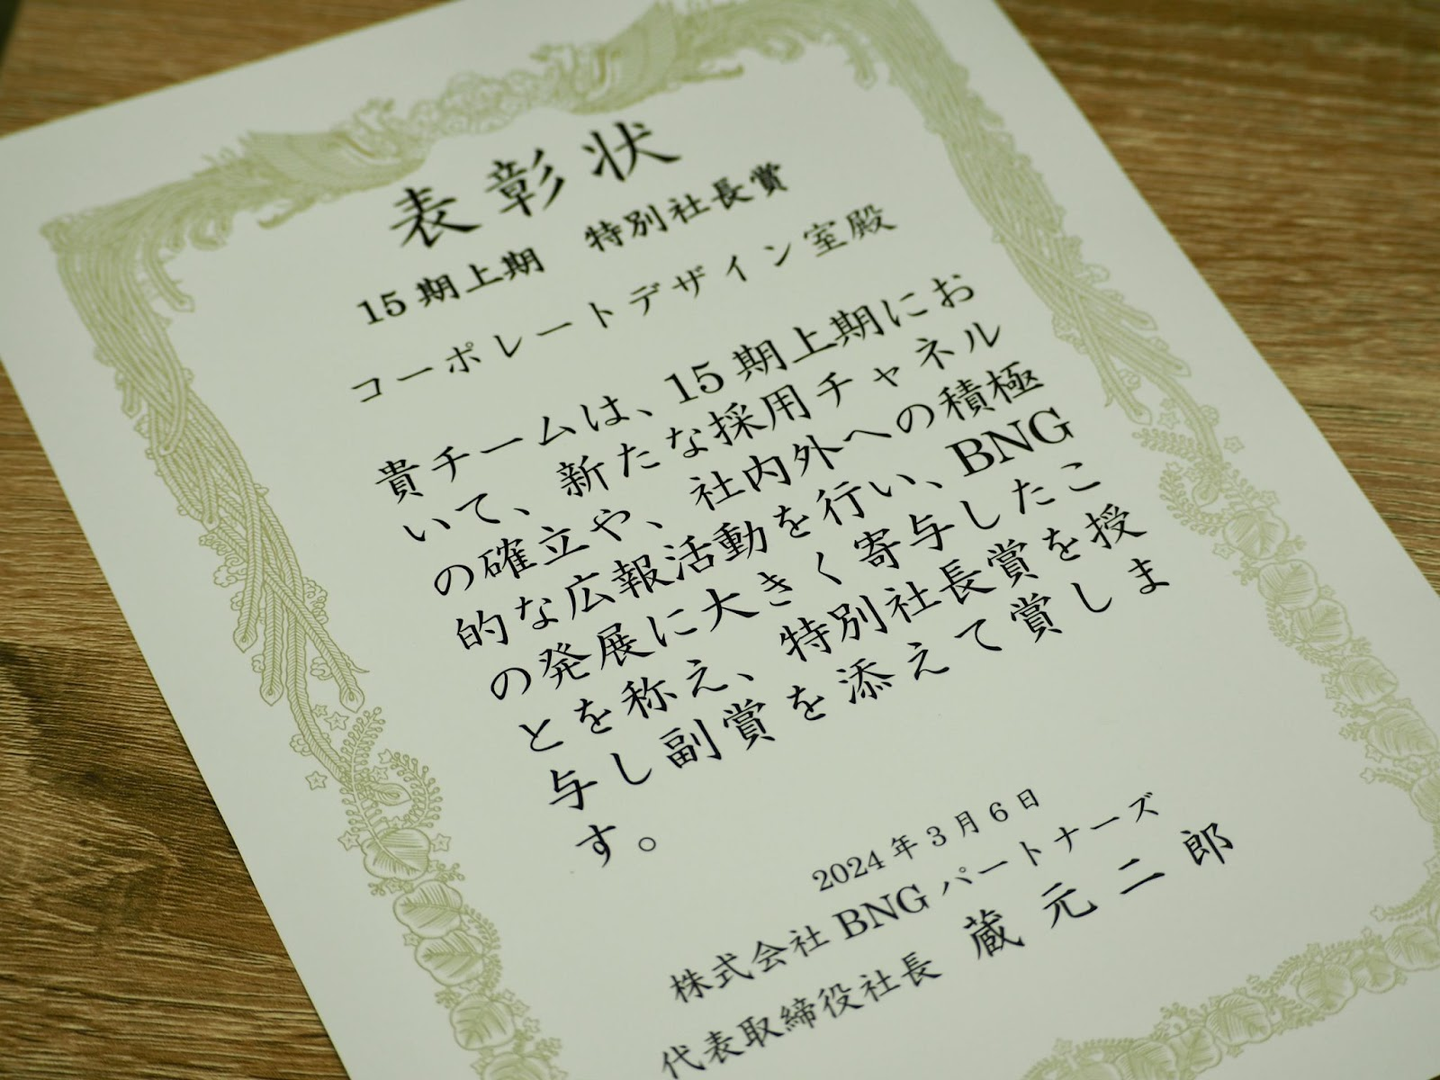 表彰状
15期上期 特別社長賞
コーポレートデザイン室殿
貴チームは、15期上期にお
いて、新たな採用チャネル
の確立や、社内外への積極
的な広報活動を行い、BNG
の発展に大きく寄与したこ
とを称え、特別社長賞を授
与し副賞を添えて賞しま
す。
2024年3月6日
株式会社BNGパートナーズ
代表取締役社長 蔵元二郎